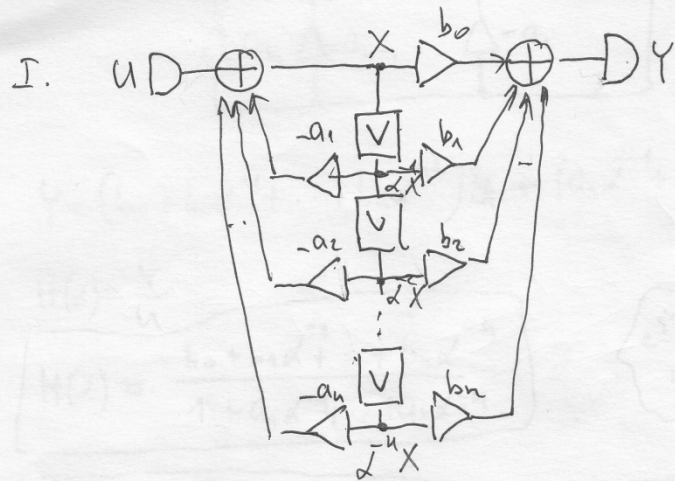 I. U X b₀ Y
V
-a₁ b₁
z⁻¹X
V
-a₂ b₂
z⁻²X
V
-aₙ bₙ
z⁻ⁿX